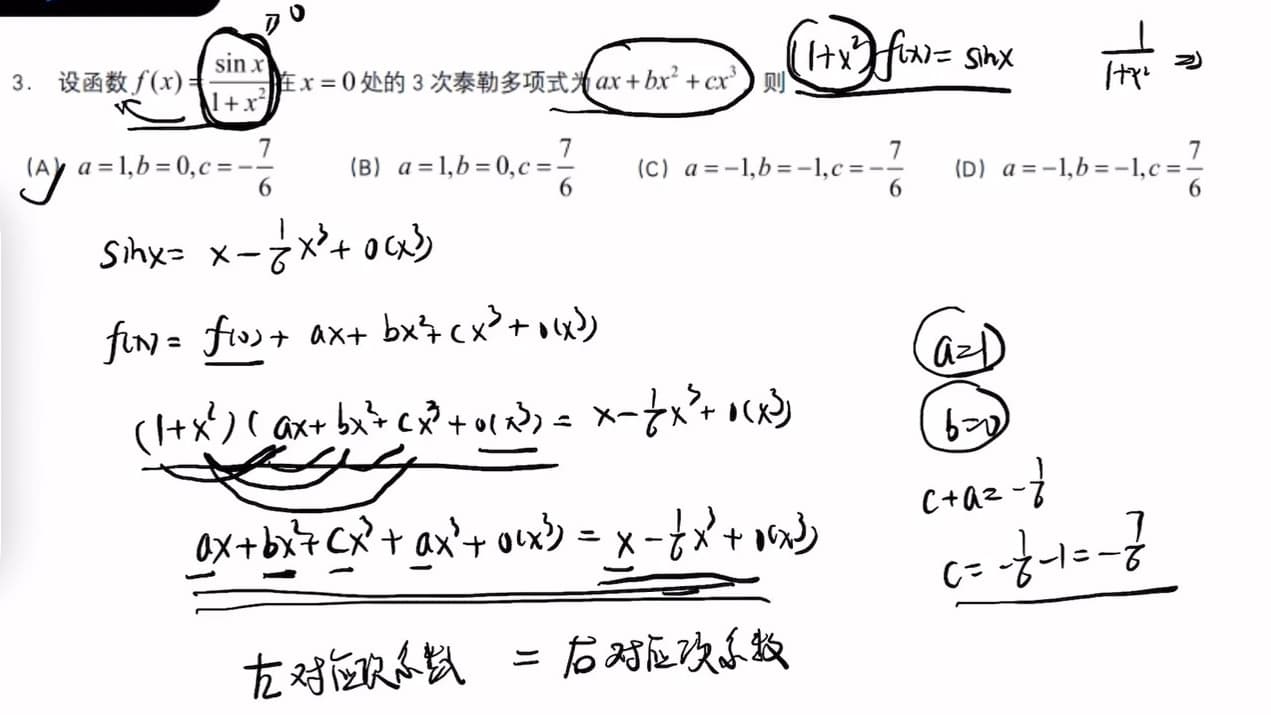 π 0
3. 设函数 f(x) = \frac{\sin x}{1+x^2} 在 x = 0 处的 3 次泰勒多项式为 ax + bx^2 + cx^3 则 (1+x^2) f(x) = sinx \frac{1}{1+x^2} ⇒
(A) a = 1, b = 0, c = -\frac{7}{6} (B) a = 1, b = 0, c = \frac{7}{6} (C) a = -1, b = -1, c = -\frac{7}{6} (D) a = -1, b = -1, c = \frac{7}{6}
sinx = x - \frac{1}{6}x^3 + o(x^3)
f(x) = f(0) + ax + bx^2 + cx^3 + o(x^3)
a=1
(1+x^2)(ax + bx^2 + cx^3 + o(x^3) = x - \frac{1}{6}x^3 + o(x^3)
b=0
c+a = -\frac{1}{6}
ax + bx^2 + cx^3 + ax^3 + o(x^3) = x - \frac{1}{6}x^3 + o(x^3)
c = -\frac{1}{6} - 1 = -\frac{7}{6}
左对应项系数 = 右对应项系数